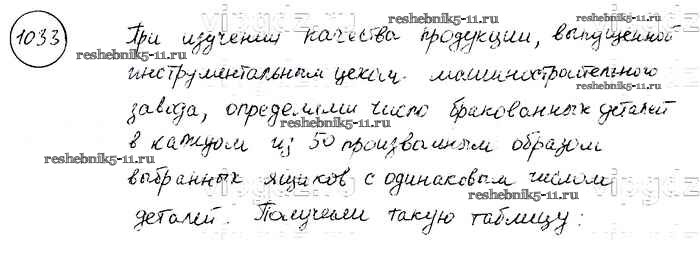 1033 При изучении качества продукции, выпущенной
инструментальным цехом машиностроительного
завода, определяли число бракованных деталей
в каждом из 50 произвольным образом
выбранных ящиков с одинаковым числом
деталей. Получили такую таблицу:
reshebnik5-11.ru
reshebnik5-11.ru
reshebnik5-11.ru
reshebnik5-11.ru
reshebnik5-11.ru
reshebnik5-11.ru
reshebnik5-11.ru